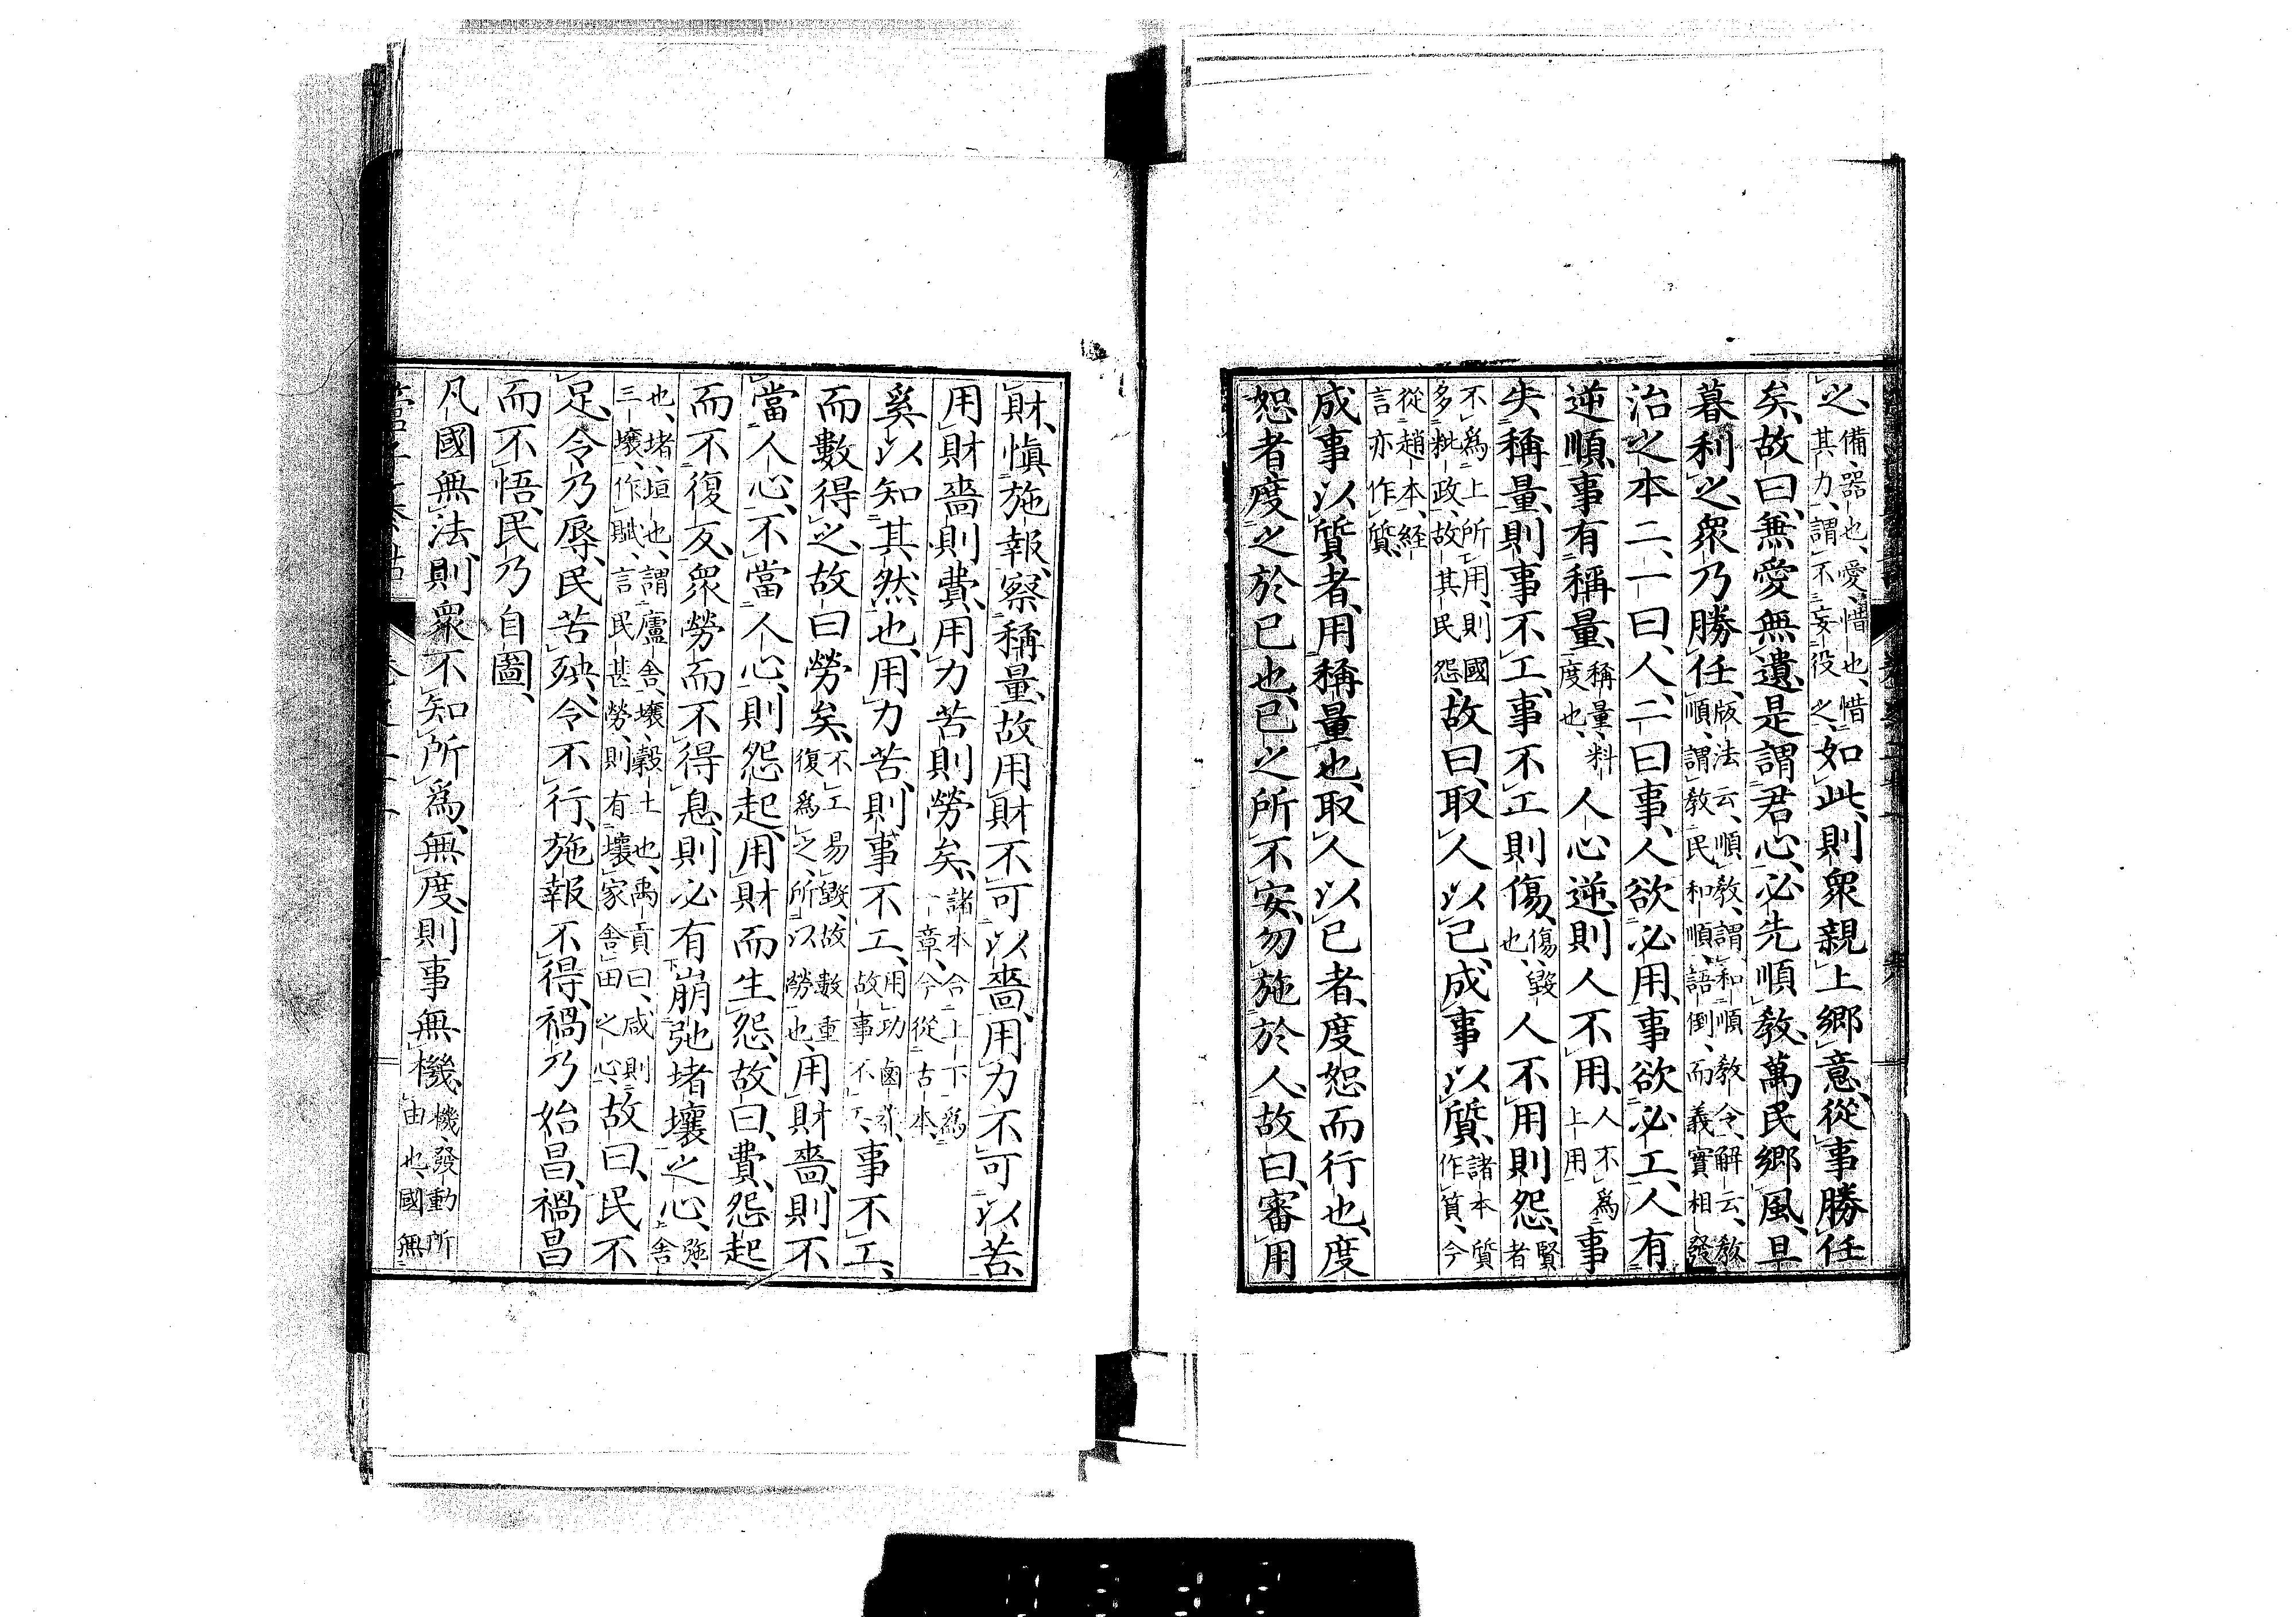 之、備、器也、愛、惜也、惜其力、謂不妄役之、如此、則衆親上郷意、從事勝任
矣、故曰、無愛無遺、是謂君心、必先順教、萬民郷風、旦
暮利之、衆乃勝任、版法云、順教、謂和順教令、解云、教順、謂教民和順、語倒、而義實相發
治之本二、一曰、人、二曰事、人欲必用、事欲必工、人有
逆順、事有稱量、稱量、料度也、人心逆、則人不用、人不爲上用事
失稱量、則事不工、事不工則傷、傷、毀也、人不用則怨、賢者
不爲上所用、則國多粃政、故其民怨故曰、取人以己、成事以質、諸本質作質、今
從趙本、経言亦作質、
成事以質者、用稱量也、取人以己者、度恕而行也、度
恕者、度之於己也、己之所不安、勿施於人、故曰、審用
財、愼施報、察稱量、故用財不可以嗇、用力不可以苦、
用財嗇則費、用力苦則勞矣、諸本合上下爲一章、今從古本、
奚以知其然也、用力苦、則事不工、用功鹵莽、故事不工、事不工、
而數得之、故曰勞矣、不工易毀、故數重復爲之、所以勞也、用財嗇、則不
當人心、不當人心、則怨起、用財而生怨、故曰、費、怨起
而不復反、衆勞而不得息、則必有崩弛堵壞之心、弛舍
也、堵、垣也、謂廬舍、壤、穀土也、禹貢曰、咸則三壤、作賦、言民甚勞、則有壞家舍田之心、故曰、民不
足、令乃辱、民苦殃、令不行、施報不得、禍乃始昌、禍昌
而不悟、民乃自圖、
凡國無法、則衆不知所爲、無度、則事無機、機、發動所由也、國無